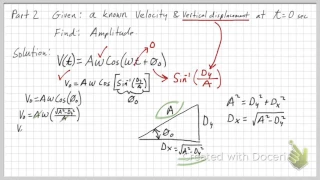 Part 2 Given: a known Velocity & Vertical displacement at t=0 sec
Find: Amplitude
Solution:
V(t) = Aω Cos(ωt + Ø₀)
0
V₀ = Aω Cos(Ø₀)
V₀ = Aω Cos[Sin⁻¹(Dy/A)]
Ø₀
Sin⁻¹(Dy/A)
V₀ = Aω(√(A²-Dy²)/A)
V₀
A
Dy
Ø₀
Dx = √(A²-Dy²)
A² = Dy² + Dx²
Dx = √(A²-Dy²)
Created with Doceri